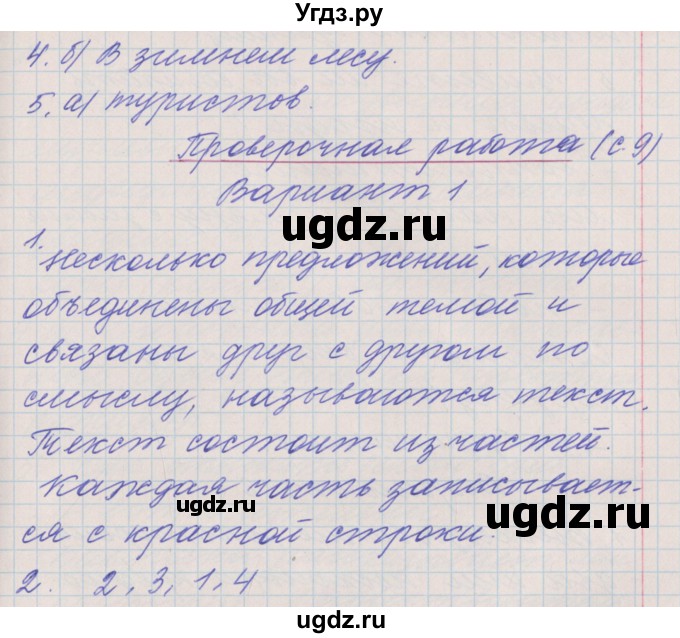 Угдз.ру
4. б) В зимнем лесу.
5. а) туристов.
Проверочная работа (с. 9)
Вариант 1
ugdz.ru
1. Несколько предложений, которые
объединены общей темой и
связаны друг с другом по
смыслу, называются текст.
Текст состоит из частей.
Каждая часть записывает-
ugdz.ru
ugdz.ru
ся с красной строки.
2. 2, 3, 1, 4
ugdz.ru